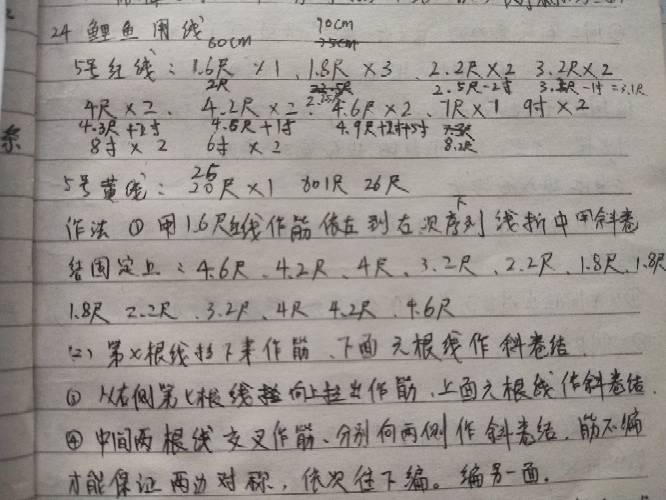 24 鲤鱼用线
60cm 90cm
35cm
5号红线：1.6尺×1、1.8尺×3、2.2尺×2 3.2尺×2
2尺 2.5尺-2寸 -1寸=3.1尺
4尺×2、4.2尺×2、4.6尺×2、7尺×1 9寸×2
4.3尺+2寸 4.5尺+1寸 4.9尺 8.2尺
8寸×2 6寸×2
25
5号黄线：20尺×1 26尺
作法 ① 用1.6尺红线作筋 依左到右次序列 下 线折中用斜卷
结固定上：4.6尺、4.2尺、4尺、3.2尺、2.2尺、1.8尺、1.8尺
1.8尺 2.2尺、3.2尺、4尺 4.2尺、4.6尺
(2) 第 根线拉下来作筋、下面 根线作斜卷结、
③ 从右侧第 根线 向上拉出作筋、上面 根线作斜卷结、
④ 中间两根线交叉作筋、分别向两侧作斜卷结，筋不编
才能保证两边对称，依次往下编。编另一面。